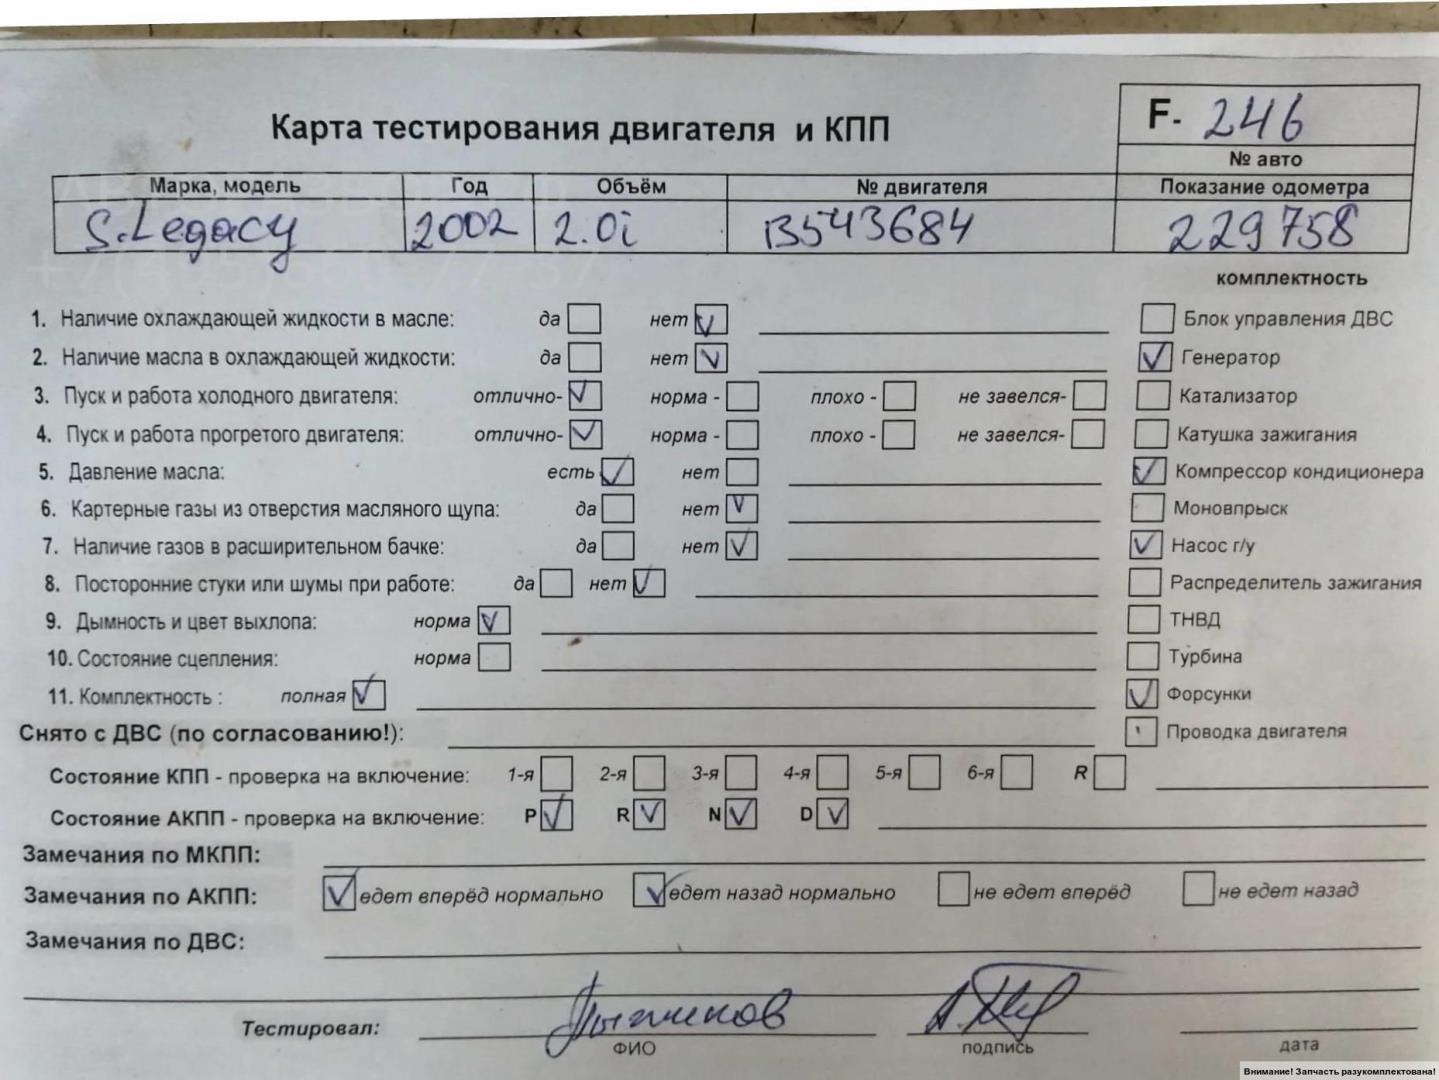 Карта тестирования двигателя и КПП
F- 246
№ авто
Марка, модель Год Объём № двигателя Показание одометра
S.Legacy 2002 2.0i B543684 229758
комплектность
1. Наличие охлаждающей жидкости в масле: да нет Блок управления ДВС
2. Наличие масла в охлаждающей жидкости: да нет Генератор
3. Пуск и работа холодного двигателя: отлично- норма - плохо - не завелся- Катализатор
4. Пуск и работа прогретого двигателя: отлично- норма - плохо - не завелся- Катушка зажигания
5. Давление масла: есть нет Компрессор кондиционера
6. Картерные газы из отверстия масляного щупа: да нет Моновпрыск
7. Наличие газов в расширительном бачке: да нет Насос г/у
8. Посторонние стуки или шумы при работе: да нет Распределитель зажигания
9. Дымность и цвет выхлопа: норма ТНВД
10. Состояние сцепления: норма Турбина
11. Комплектность : полная Форсунки
Снято с ДВС (по согласованию!): Проводка двигателя
Состояние КПП - проверка на включение: 1-я 2-я 3-я 4-я 5-я 6-я R
Состояние АКПП - проверка на включение: P R N D
Замечания по МКПП:
Замечания по АКПП: едет вперёд нормально едет назад нормально не едет вперёд не едет назад
Замечания по ДВС:
Тестировал:
ФИО подпись дата
Внимание! Запчасть разукомплектована!